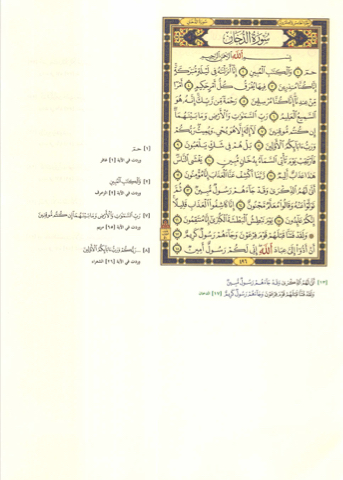 سورة الدخان
بسم الله الرحمن الرحيم
حم ١ والكتاب المبين ٢ إنا أنزلناه في ليلة مباركة
إنا كنا منذرين ٣ فيها يفرق كل أمر حكيم ٤ أمرا
من عندنا إنا كنا مرسلين ٥ رحمة من ربك إنه هو
السميع العليم ٦ رب السماوات والأرض وما بينهما
إن كنتم موقنين ٧ لا إله إلا هو يحيي ويميت ربكم
ورب آبائكم الأولين ٨ بل هم في شك يلعبون ٩
فارتقب يوم تأتي السماء بدخان مبين ١٠ يغشى الناس
هذا عذاب أليم ١١ ربنا اكشف عنا العذاب إنا مؤمنون ١٢
أنى لهم الذكرى وقد جاءهم رسول مبين ١٣ ثم
تولوا عنه وقالوا معلم مجنون ١٤ إنا كاشفو العذاب قليلا
إنكم عائدون ١٥ يوم نبطش البطشة الكبرى إنا منتقمون ١٦
ولقد فتنا قبلهم قوم فرعون وجاءهم رسول كريم ١٧
أن أدوا إلي عباد الله إني لكم رسول أمين ١٨
٤٩٦
[١] حم
وردت في الآية [١] غافر
[٢] والكتاب المبين
وردت في الآية [٢] الزخرف
[٧] رب السماوات والأرض وما بينهما إن كنتم موقنين
وردت في الآية [٦٥] مريم
[٨] ربكم ورب آبائكم الأولين
وردت في الآية [٢٦] الشعراء
[١٣] أنى لهم الذكرى وقد جاءهم رسول مبين
ولقد فتنا قبلهم قوم فرعون وجاءهم رسول كريم [١٧] الدخان